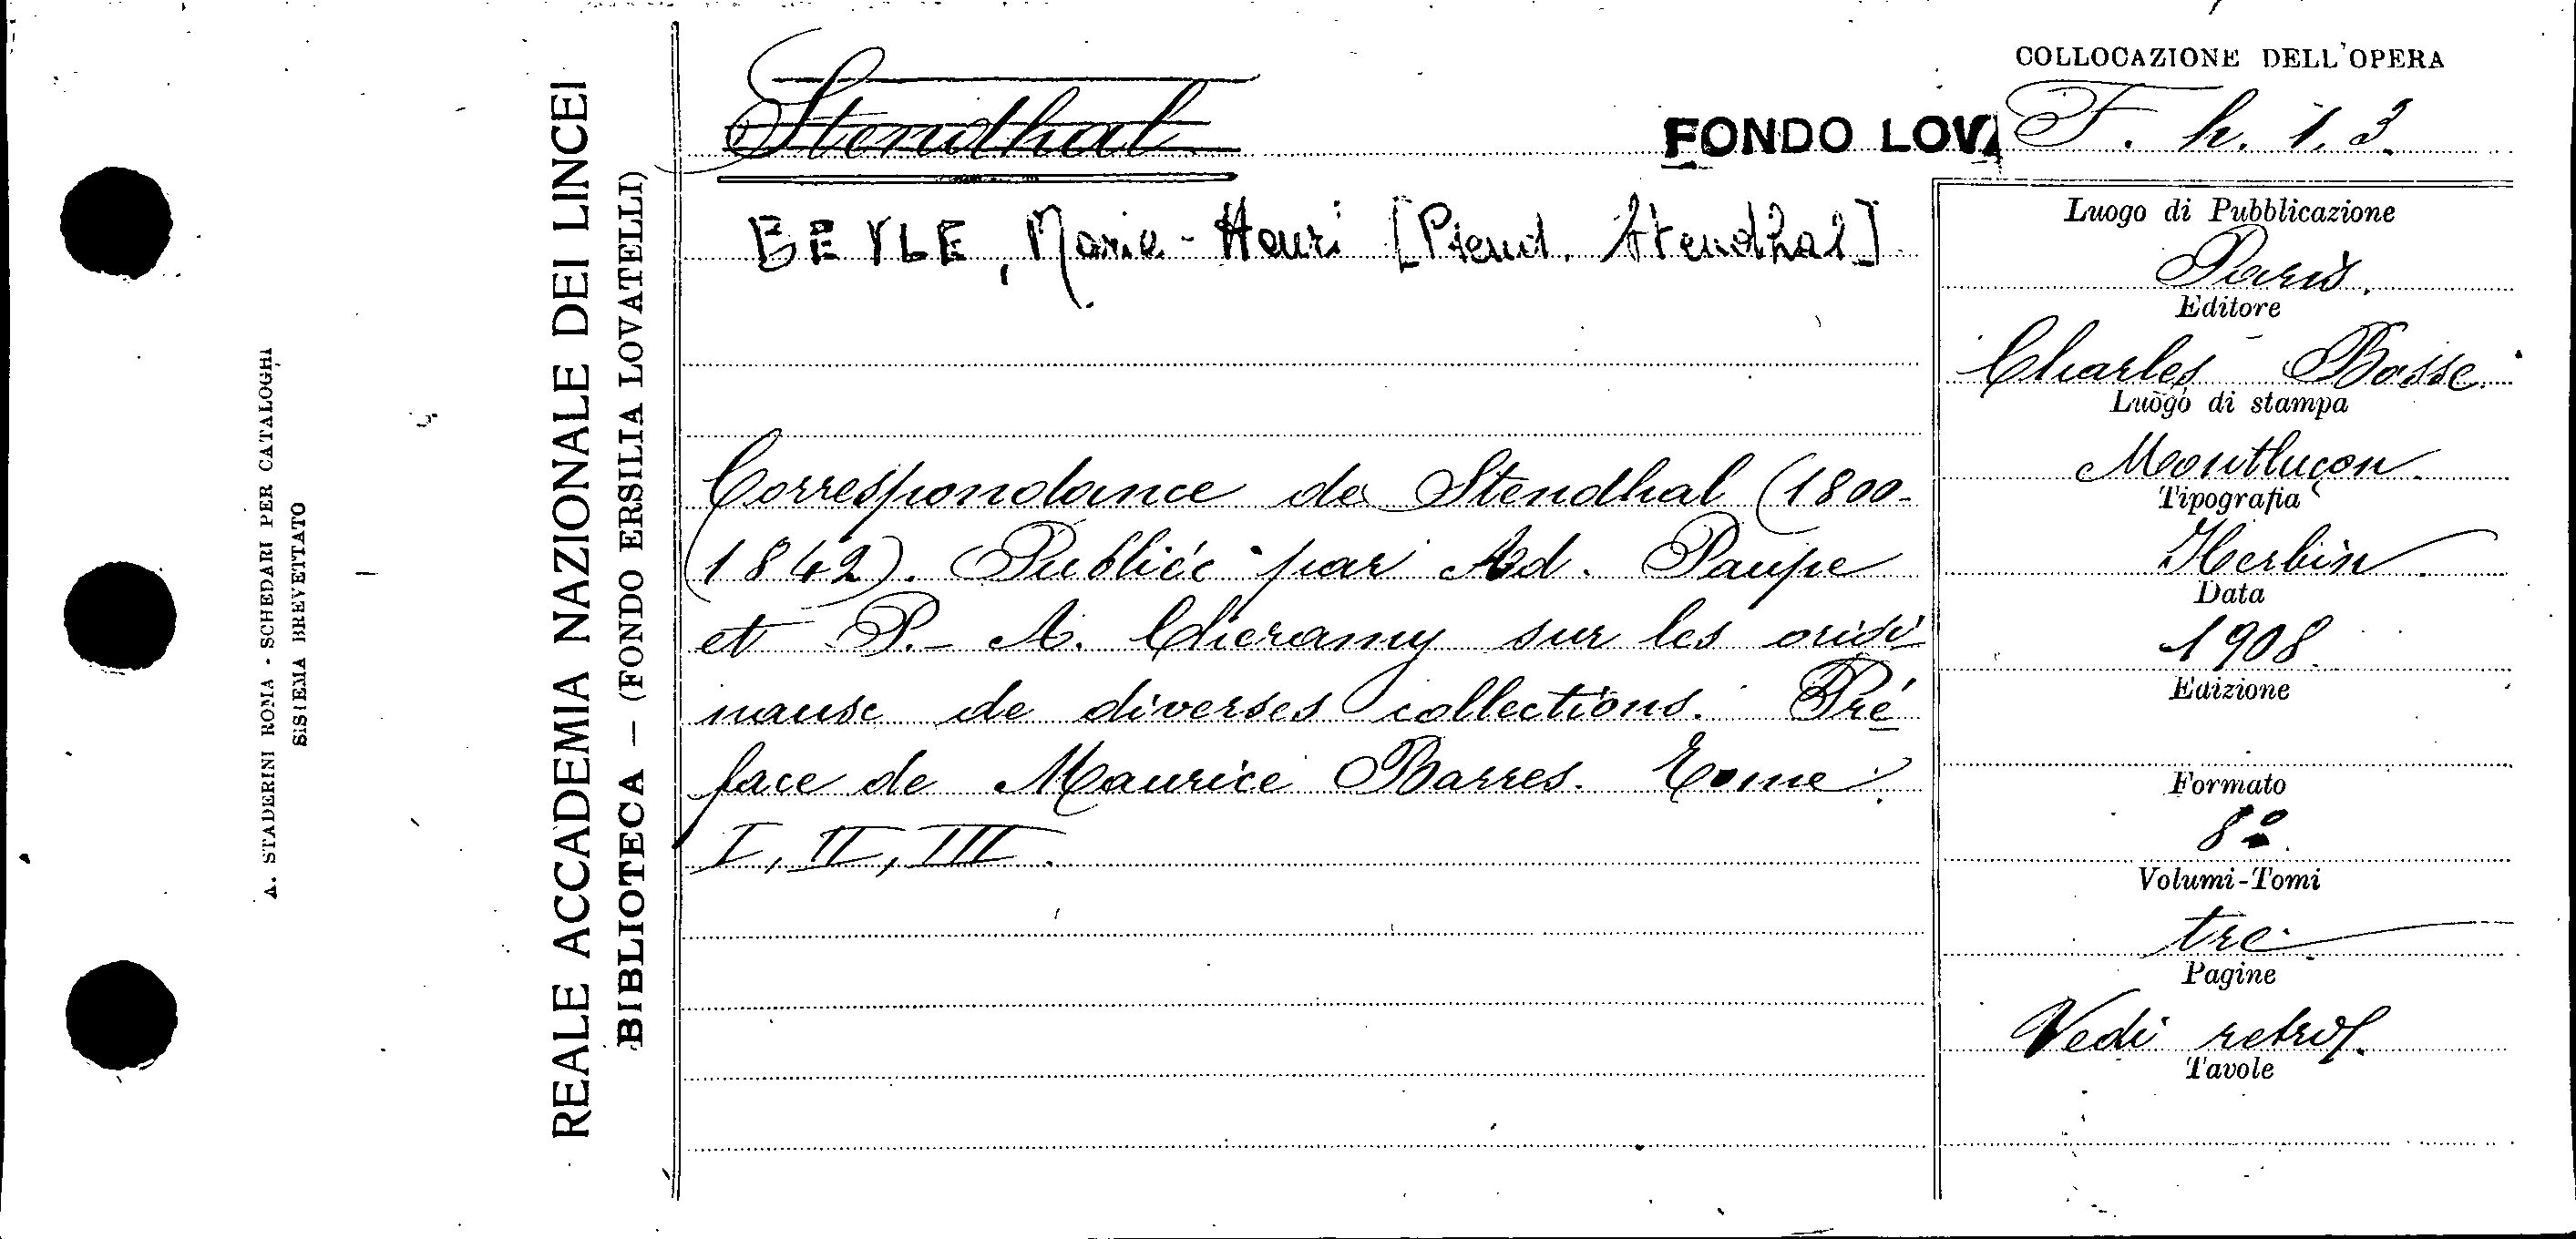 A. STADERINI ROMA - SCHEDARI PER CATALOGHI
SISTEMA BREVETTATO
REALE ACCADEMIA NAZIONALE DEI LINCEI
BIBLIOTECA — (FONDO ERSILIA LOVATELLI)
COLLOCAZIONE DELL'OPERA
Stendhal
FONDO LOVA F. h. 1. 3.
BEYLE, Marie-Henri [Pseud. Stendhal]
Correspondance de Stendhal (1800-
1842). Publiée par Ad. Paupe
et P.-A. Chéramy sur les origi
naux de diverses collections. Pré
face de Maurice Barres. Tome
I, II, III.
Luogo di Pubblicazione
Paris.
Editore
Charles Bosse.
Luogo di stampa
Montluçon.
Tipografia
Herbin
Data
1908.
Edizione
Formato
8º.
Volumi-Tomi
tre
Pagine
Vedi retro.
Tavole